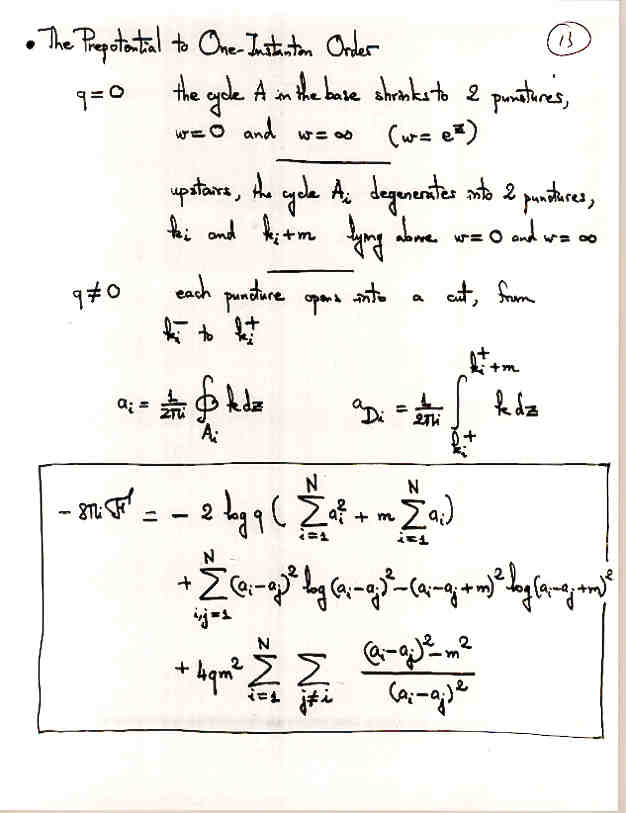 • The Prepotential to One-Instanton Order
13
q=0 the cycle A in the base shrinks to 2 punctures,
w=0 and w=∞ (w= e^z)
upstairs, the cycle A_i degenerates into 2 punctures,
k_i and k_i+m lying above w=0 and w=∞
q≠0 each puncture opens into a cut, from
k_i^- to k_i^+
a_i = 1/2πi ∮_{A_i} k dz a_{D_i} = 1/2πi ∫_{k_i^+}^{k_i^+ +m} k dz
-8πi F = - 2 log q ( Σ_{i=1}^N a_i^2 + m Σ_{i=1}^N a_i)
+ Σ_{i,j=1}^N (a_i-a_j)^2 log (a_i-a_j)^2 - (a_i-a_j+m)^2 log (a_i-a_j+m)^2
+ 4qm^2 Σ_{i=1}^N Σ_{j≠i} (a_i-a_j)^2-m^2 / (a_i-a_j)^2